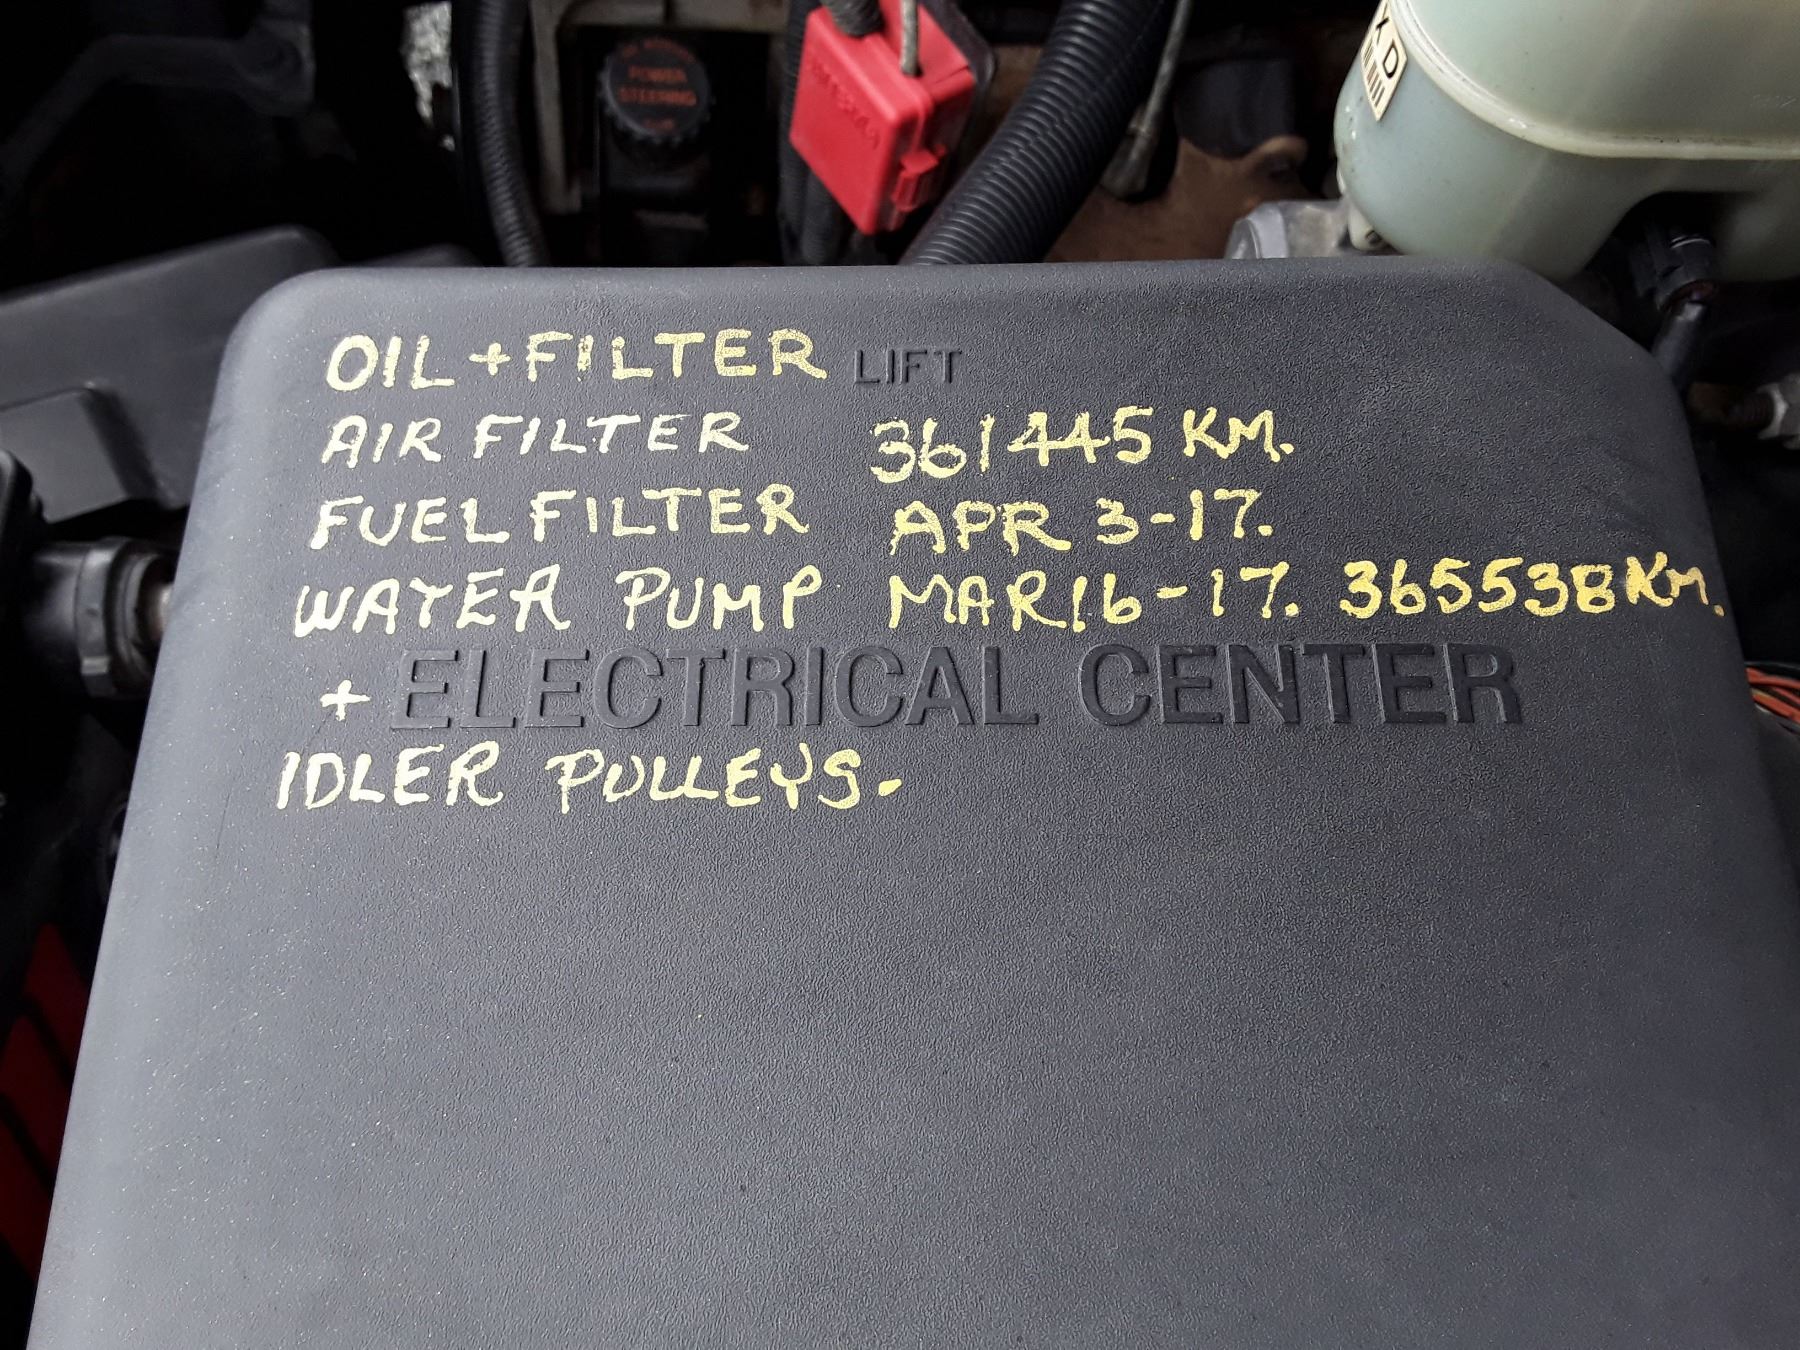 POWER
STEERING
X D
OIL + FILTER LIFT
AIR FILTER 361445 KM.
FUEL FILTER APR 3-17.
WATER PUMP MAR 16-17. 365538 KM.
+ ELECTRICAL CENTER
IDLER PULLEYS.